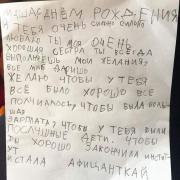 МАША С ДНЕМ РОЖДЕНИЯ
Я ТЕБЯ ОЧЕНЬ СИЛНО СИЛНО
ЛЮБЛЮ ТЫ МОЯ ОЧЕНЬ
ХОРОШАЯ СЕСТРА ТЫ ВСЕГДА
ВЫПОЛНЯЕШЬ МОИ ЖЕЛАНИЯ
ВСЕ МНЕ ДАРИШЬ
ЖЕЛАЮ ЧТОБЫ У ТЕБЯ
ВСЁ БЫЛО ХОРОШО ВСЕ
ПОЛУЧАЛОСЬ ЧТОБЫ БЫЛА БОЛЬ
ШАЯ
ЗАРПЛАТА, ЧТОБЫ У ТЕБЯ БЫЛИ
ПОСЛУШНЫЕ ДЕТИ. ЧТОБЫ
ТЫ ХОРОШО ЗАКОНЧИЛА ИНСТИТ
УТ
И СТАЛА АФИЦАНТКАЙ